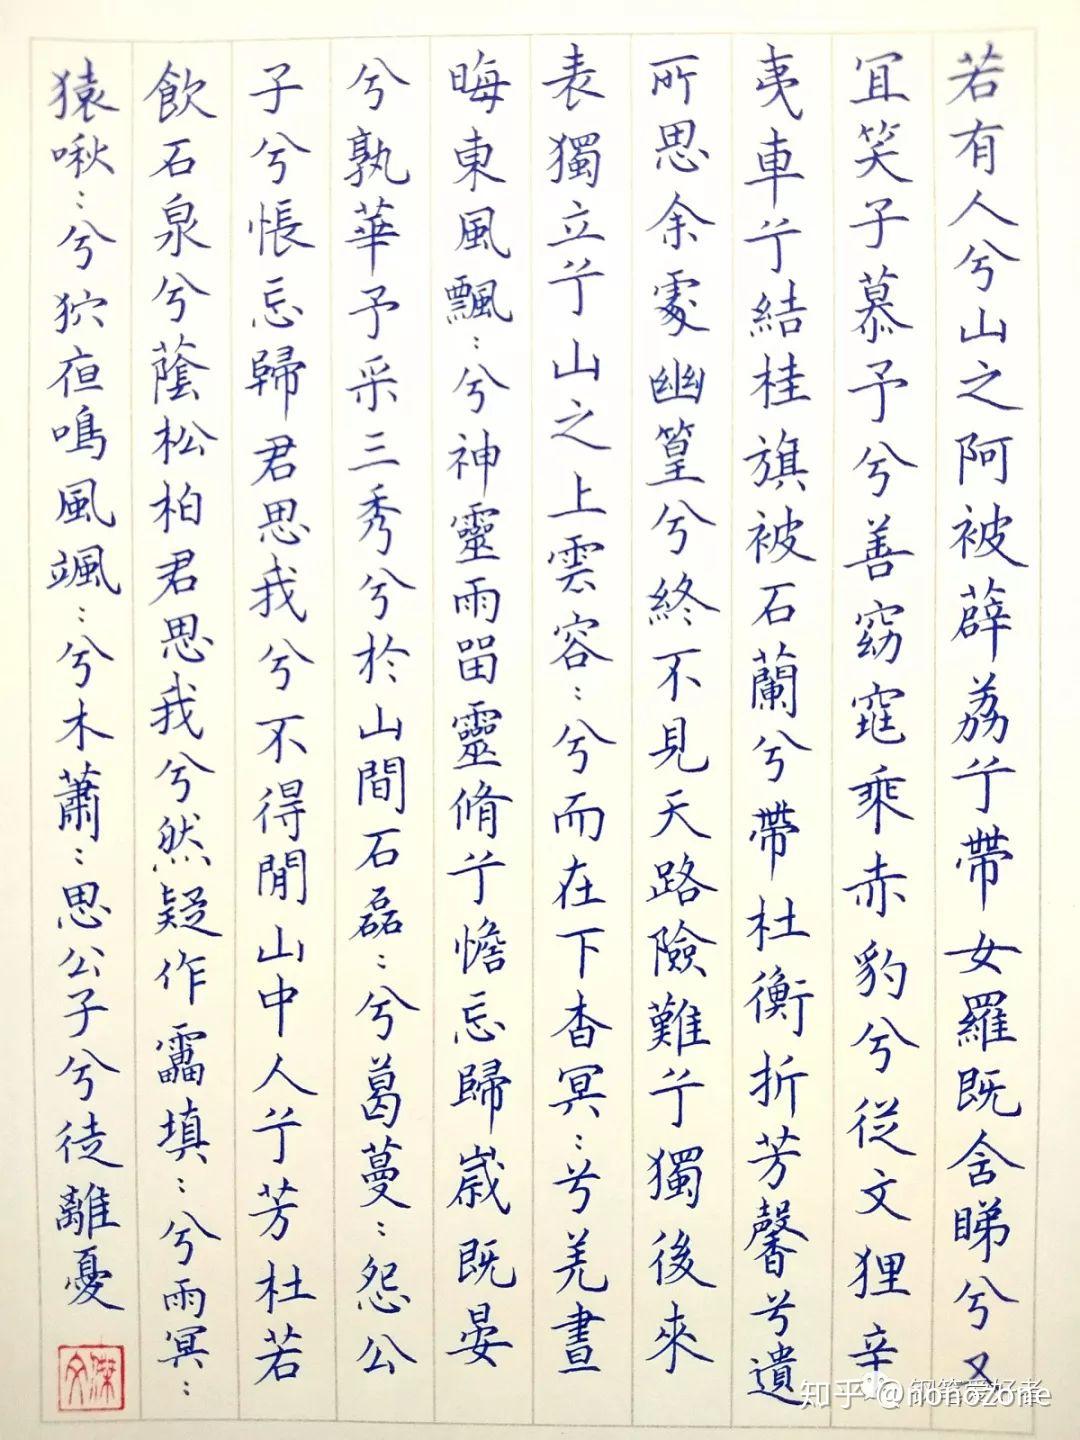 若有人兮山之阿被薜荔兮帶女羅既含睇兮又
宜笑子慕予兮善窈窕乘赤豹兮從文狸辛
夷車兮結桂旗被石蘭兮帶杜衡折芳馨兮遺
所思余處幽篁兮終不見天路險難兮獨後來
表獨立兮山之上雲容:兮而在下杳冥:兮羌晝
晦東風飄:兮神靈雨留靈脩兮憺忘歸歲既晏
兮孰華予采三秀兮於山間石磊:兮葛蔓:怨公
子兮悵忘歸君思我兮不得閒山中人兮芳杜若
飲石泉兮蔭松柏君思我兮然疑作靁填:兮雨冥:
猿啾:兮狖夜鳴風颯:兮木蕭:思公子兮徒離憂
知乎 @nonozone
钢笔爱好者